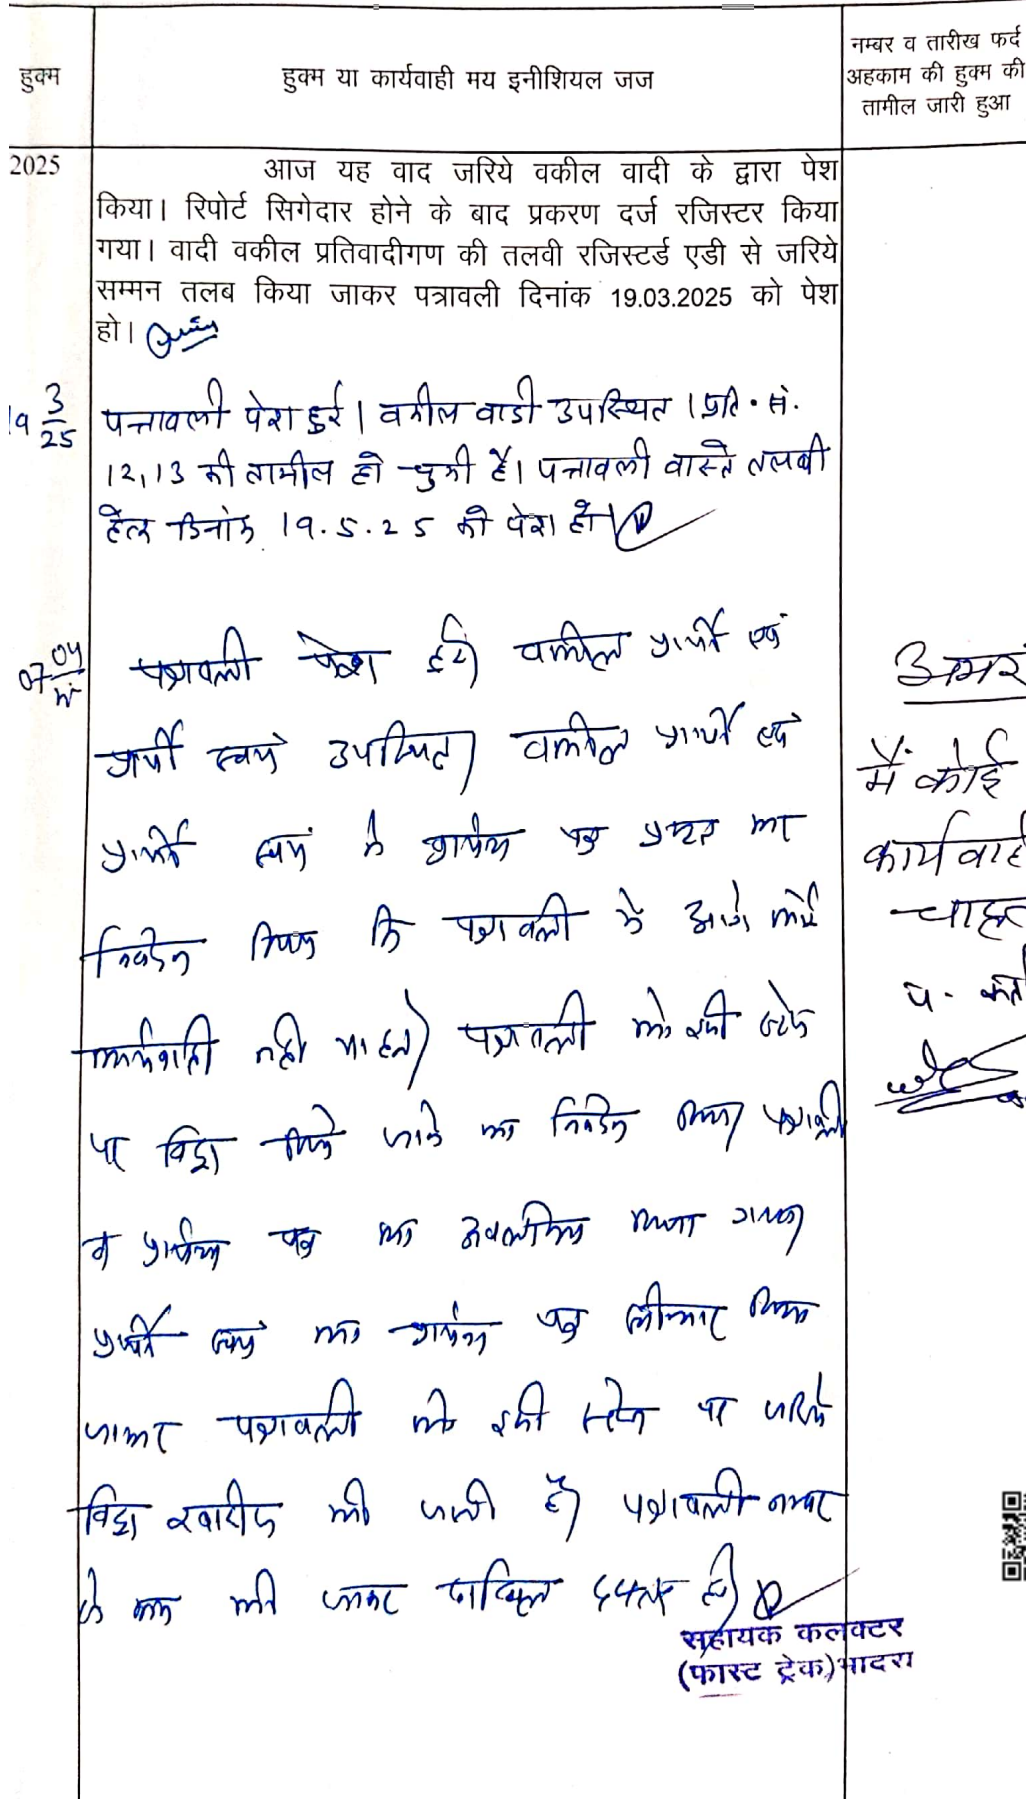 हुक्म
हुक्म या कार्यवाही मय इनीशियल जज
नम्बर व तारीख फर्द
अहकाम की हुक्म की
तामील जारी हुआ
2025
आज यह वाद जरिये वकील वादी के द्वारा पेश
किया। रिपोर्ट सिगेदार होने के बाद प्रकरण दर्ज रजिस्टर किया
गया। वादी वकील प्रतिवादीगण की तलवी रजिस्टर्ड एडी से जरिये
सम्मन तलब किया जाकर पत्रावली दिनांक 19.03.2025 को पेश
हो।
19 3/25
पत्रावली पेश हुई। वकील वादी उपस्थित। प्रति. सं.
12,13 की तामील हो चुकी है। पत्रावली वास्ते तलबी
हेतु दिनांक 19.5.25 को पेश हो।
07 04
पत्रावली पेश हुई। वकील प्रार्थी एवं
प्रार्थी स्वयं उपस्थित। वकील प्रार्थी एवं
प्रार्थी स्वयं ने प्रार्थना पत्र प्रस्तुत कर
निवेदन किया कि पत्रावली में आगे कोई
कार्यवाही नहीं चाहते। पत्रावली को इसी स्टेज
पर विड्रा किये जाने का निवेदन किया। पत्रावली
व प्रार्थना पत्र का अवलोकन किया गया।
प्रार्थी स्वयं का प्रार्थना पत्र स्वीकार किया
जाकर पत्रावली को इसी स्टेज पर जरिये
विड्रा खारीज की जाती है। पत्रावली नम्बर
से कम की जाकर दाखिल दफ्तर हो।
मैं कोई
कार्यवाह
चाहत
सहायक कलक्टर
(फास्ट ट्रेक) भादरा